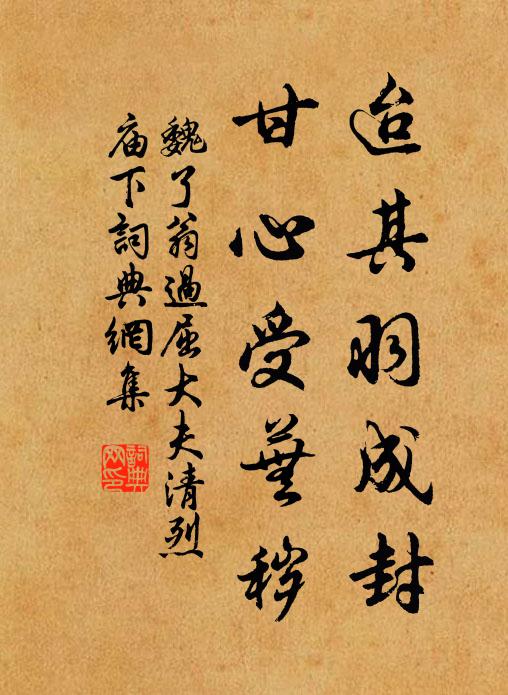 迨其羽成封
甘心受蕪穢
魏了翁過屈大夫清烈
庙下詞典網集
詞典網印